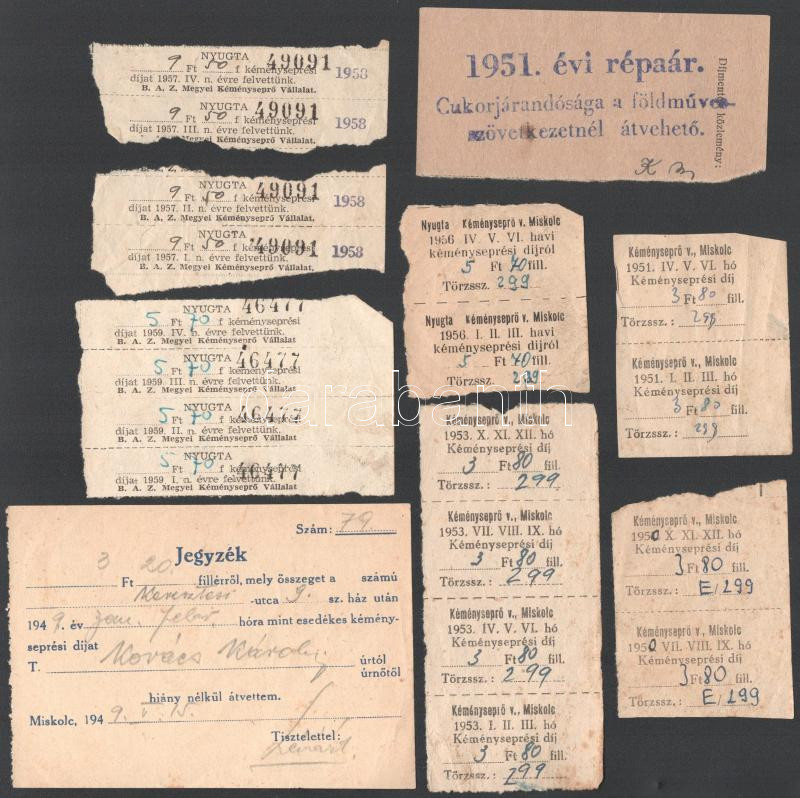 NYUGTA 49091
9 Ft 50 f kéményseprési 1958
díjat 1957. IV. n. évre felvettünk.
B. A. Z. Megyei Kéményseprő Vállalat.
NYUGTA 49091
9 Ft 50 f kéményseprési 1958
díjat 1957. III. n. évre felvettünk.
B. A. Z. Megyei Kéményseprő Vállalat.
NYUGTA 49091
9 Ft 50 f kéményseprési 1958
díjat 1957. II. n. évre felvettünk.
B. A. Z. Megyei Kéményseprő Vállalat.
NYUGTA 49091
9 Ft 50 f kéményseprési 1958
díjat 1957. I. n. évre felvettünk.
B. A. Z. Megyei Kéményseprő Vállalat.
NYUGTA 46477
5 Ft 70 f kéményseprési
díjat 1959. IV. n. évre felvettünk.
B. A. Z. Megyei Kéményseprő Vállalat
NYUGTA 46477
5 Ft 70 f kéményseprési
díjat 1959. III. n. évre felvettünk.
B. A. Z. Megyei Kéményseprő Vállalat
NYUGTA 46477
5 Ft 70 f kéményseprési
díjat 1959. II. n. évre felvettünk.
B. A. Z. Megyei Kéményseprő Vállalat
NYUGTA 46477
5 Ft 70 f kéményseprési
díjat 1959. I. n. évre felvettünk.
B. A. Z. Megyei Kéményseprő Vállalat
1951. évi répaár.
Cukorjárandósága a földműves-
szövetkezetnél átvehető.
Díjmentes közlemény:
Nyugta Kéményseprő v. Miskolc
1956 IV. V. VI. havi
kéményseprési díjról
5 Ft 70 fill.
Törzssz. 299
Nyugta Kéményseprő v. Miskolc
1956. I. II. III. havi
kéményseprési díjról
5 Ft 70 fill.
Törzssz. 299
Kéményseprő v., Miskolc
1951. IV. V. VI. hó
Kéményseprési díj
3 Ft 80 fill.
Törzssz.: 299
Kéményseprő v., Miskolc
1951. I. II. III. hó
Kéményseprési díj
3 Ft 80 fill.
Törzssz.: 299
Kéményseprő v., Miskolc
1953. X. XI. XII. hó
Kéményseprési díj
3 Ft 80 fill.
Törzssz.: 299
Kéményseprő v., Miskolc
1953. VII. VIII. IX. hó
Kéményseprési díj
3 Ft 80 fill.
Törzssz.: 299
Kéményseprő v., Miskolc
1953. IV. V. VI. hó
Kéményseprési díj
3 Ft 80 fill.
Törzssz.: 299
Kéményseprő v., Miskolc
1953. I. II. III. hó
Kéményseprési díj
3 Ft 80 fill.
Törzssz.: 299
Kéményseprő v., Miskolc
1950 X. XI. XII. hó
Kéményseprési díj
3 Ft 80 fill.
Törzssz.: E/299
Kéményseprő v., Miskolc
1950 VII. VIII. IX. hó
Kéményseprési díj
3 Ft 80 fill.
Törzssz.: E/299
Szám: 79
Jegyzék
3 Ft 20 fillérről, mely összeget a számú
Keresztesi -utca 9. sz. ház után
194 9. év jan. febr. hóra mint esedékes kémény-
seprési díjat
T. Kovács Károly úrtól
úrnőtől
hiány nélkül átvettem.
Miskolc, 194 9.
Tisztelettel:
darabanth